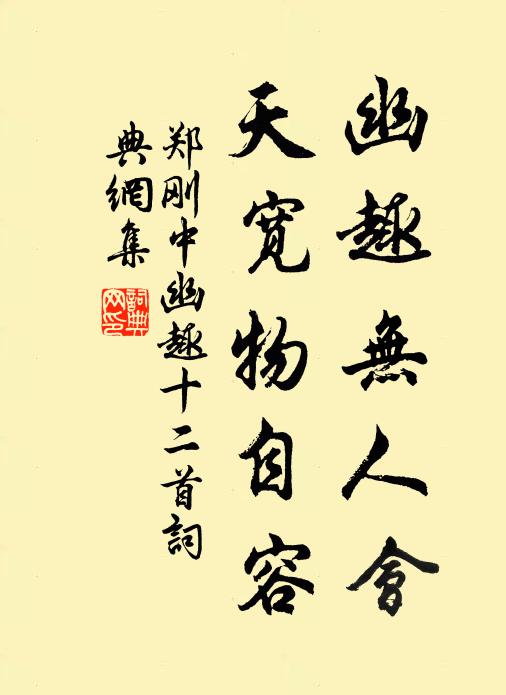 幽趣無人會
天寬物自容
郑刚中幽趣十二首詞
典網集
詞典
网印